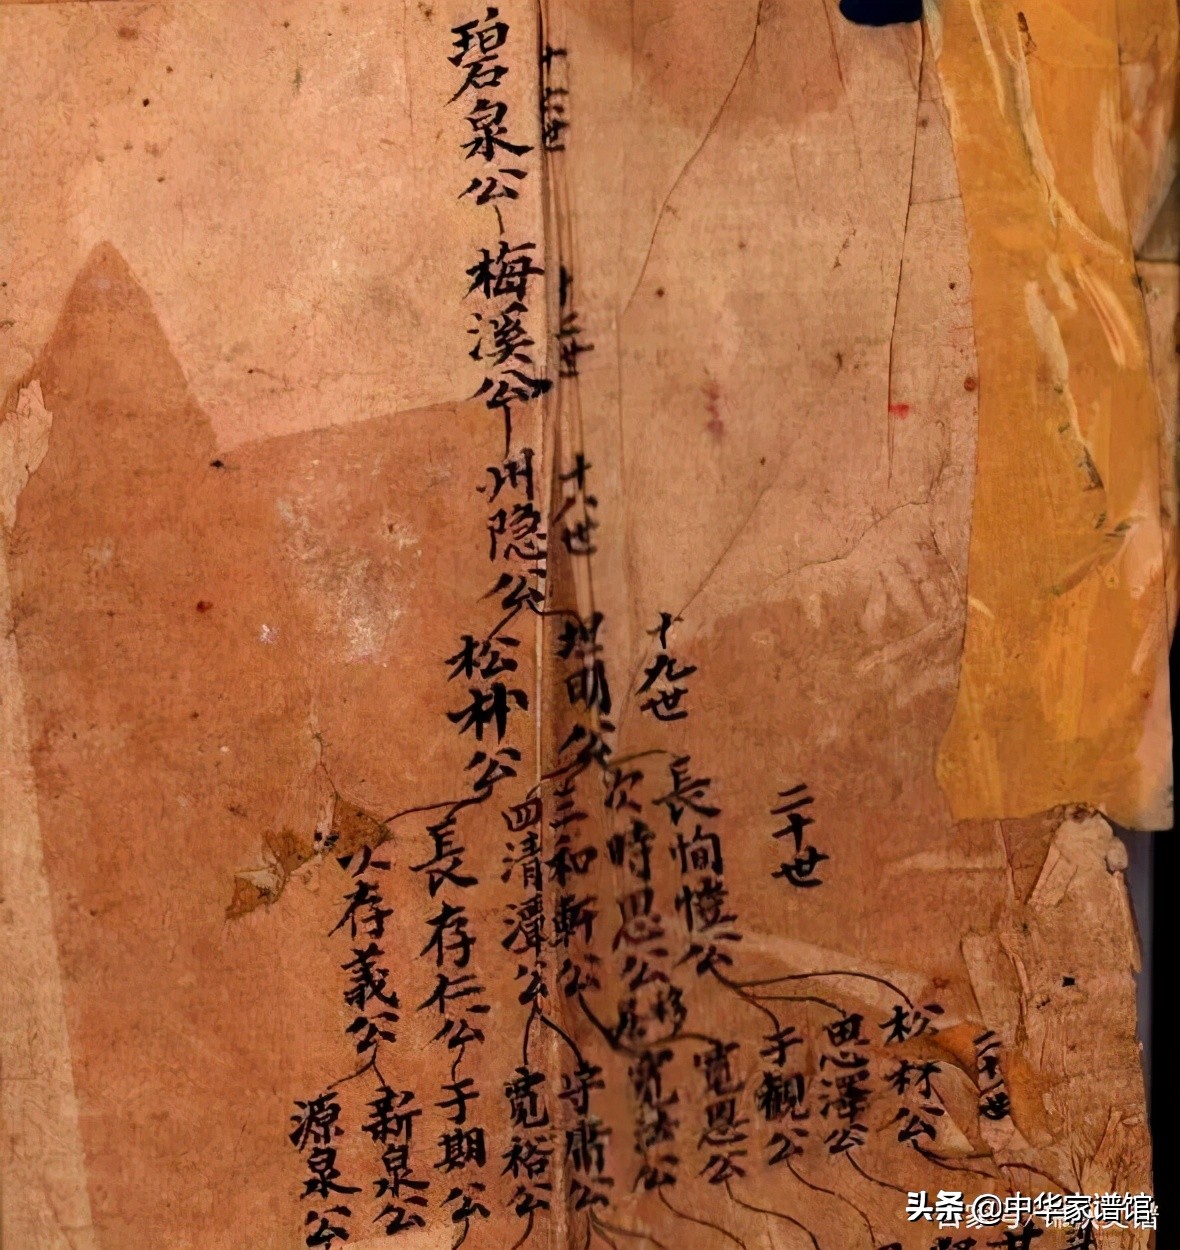 十六世
碧泉公
十七世
梅溪公
十八世
州隐公
十九世
坦明公
松林公
二十世
長恂慥公
次時思公
三和軒公
四清潭公
長存仁公
次存義公
二十一世
松林公
思澤公
于觀公
寛恩公
守庸公
寛裕公
于期公
新泉公
源泉公
头条 @中华家谱馆